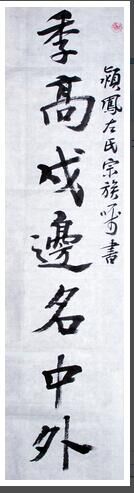 季高戍邊名中外
潁鳳左氏宗族囑書